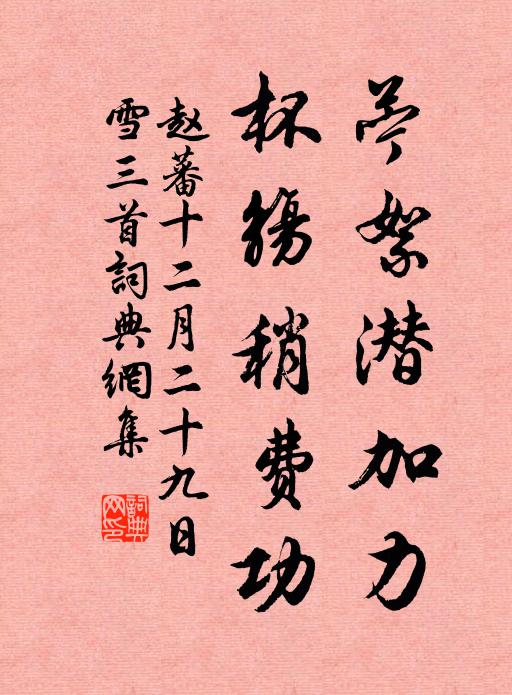 苧絮潜加力
杯觴稍費功
赵蕃十二月二十九日
雪三首詞典網集
詞典
网印